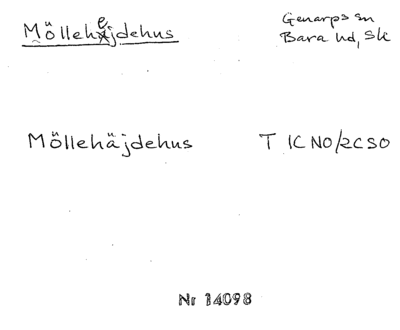 Möllehejdehus
Genarps sn
Bara hd, Sk
Möllehäjdehus
T 1C NO/2C SO
Nr 14098